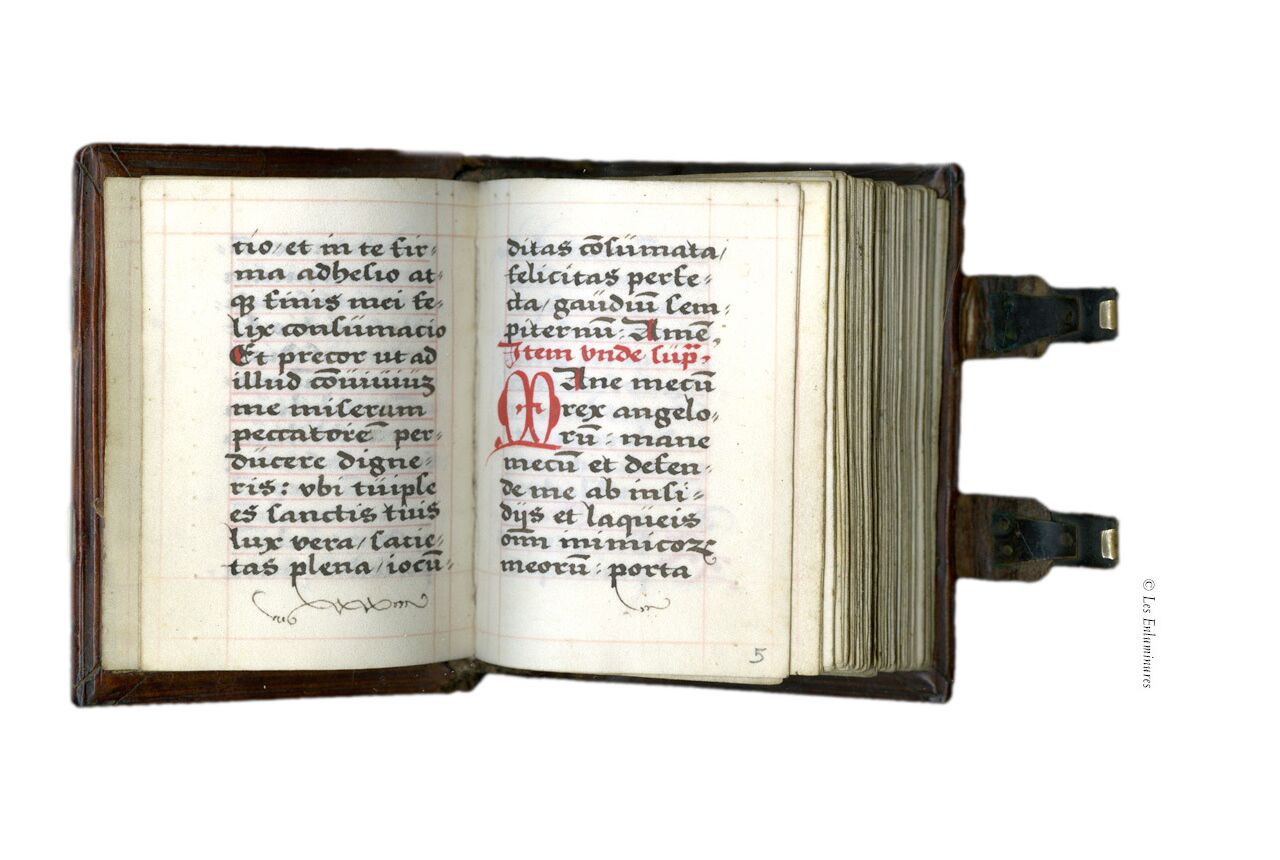 tio/et in te fir⸗
ma adhesio at⸗
qꝫ finis mei fe⸗
lix consümacio
Et precor ut ad
illud cōüiuiüꝫ
me miserum
peccatorē per⸗
dücere digne⸗
ris: vbi tü iple
es sanctis tüis
lux vera/sacie⸗
tas plena/iocū⸗
ditas cōsümata/
felicitas perfe⸗
cta/gaüdiū sem⸗
piternū: Amē.
Item vnde süp̄⸗
MAne mecū
rex angelo⸗
rū: mane
mecū et defen⸗
de me ab insi⸗
dijs et laqüeis
om̄i inimicoꝝ
meorū: porta
5
© Les Enluminures